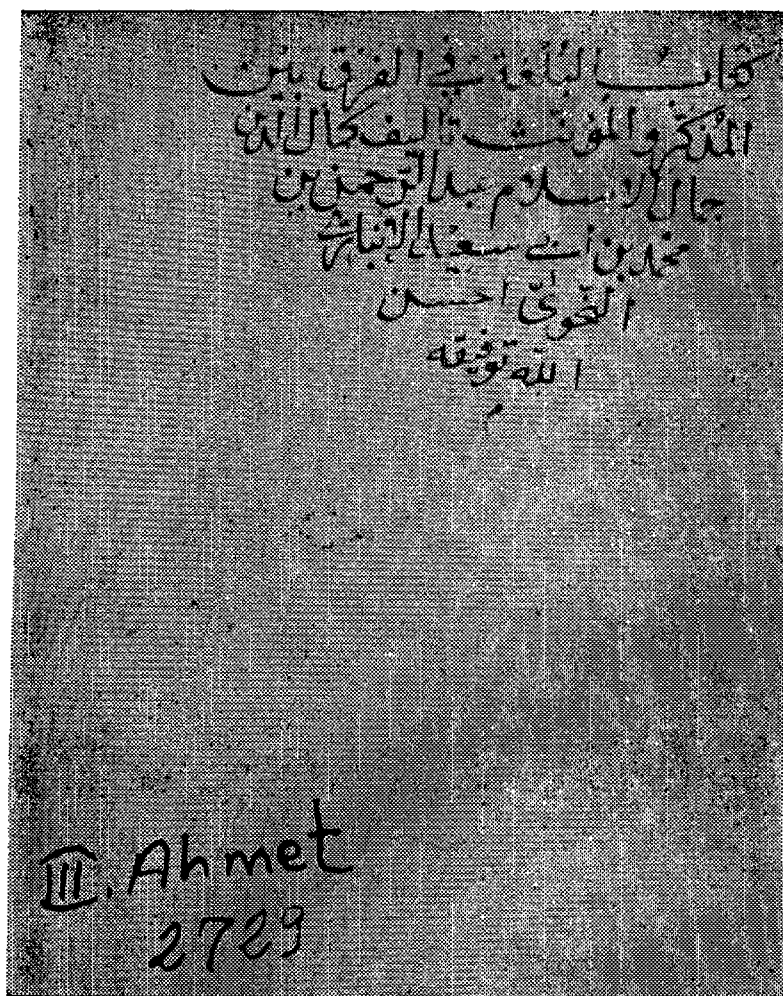 كتاب البلغة في الفرق بين
المذكر والمؤنث تأليف كمال الدين
جمال الاسلام عبد الرحمن بن
محمد بن أبي سعيد الانباري
النحوي احسن
الله توفيقه
م
III. Ahmet
2729